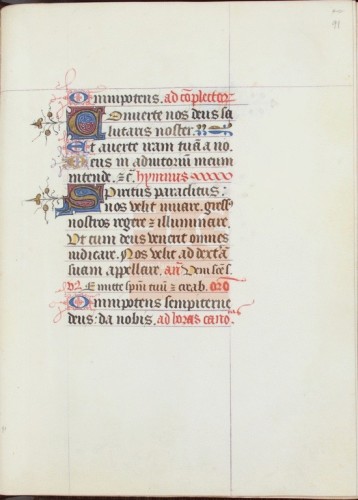 91
Omnipotens. ad cōplector
Conuerte nos deus sa
lutaris noster.
Et auerte iram tuā a no.
Deus in adiutorium meum
intende. &c̄. hymnus
Spiritus paraclitus:
nos velit iuuare. gress̄
nostros regere & illuminare.
Vt cum deus venerit omnes
iudicare. Nos velit ad dextā
suam appellare. an̄ Veni sc̄e s̄.
Emitte spm̄ tuū & creab. oro
Omnipotens sempiterne
deus: da nobis. ad horas cano